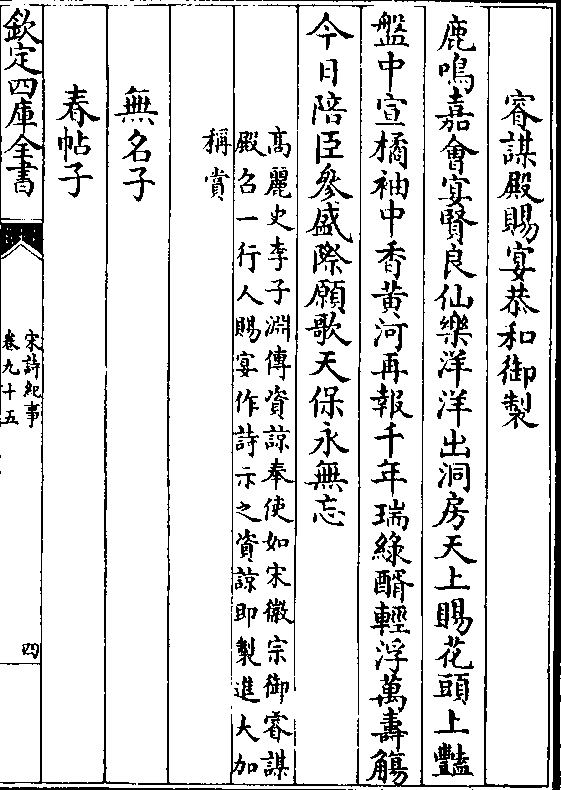 睿謀殿賜宴恭和御製
鹿鳴嘉會宴賢良仙樂洋洋出洞房天上賜花頭上豔
盤中宣橘袖中香黃河再報千年瑞綠醑輕浮萬壽觴
今日陪臣參盛際願歌天保永無忘
高麗史李子淵傳資諒奉使如宋徽宗御睿謀
殿召一行人賜宴作詩示之資諒即製進大加
稱賞
無名子
春帖子
欽定四庫全書
宋詩紀事
卷九十五
四